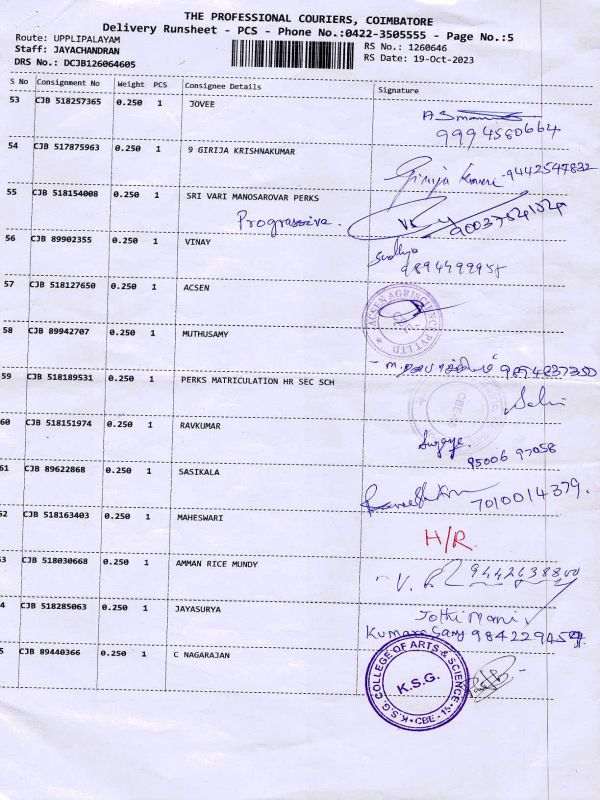 THE PROFESSIONAL COURIERS, COIMBATORE
Delivery Runsheet - PCS - Phone No.:0422-3505555 - Page No.:5
Route: UPPLIPALAYAM
RS No.: 1260646
Staff: JAYACHANDRAN
RS Date: 19-Oct-2023
DRS No.: DCJB126064605
S No Consignment No Weight PCS Consignee Details Signature
53 CJB 518257365 0.250 1 JOVEE
9994580664
54 CJB 517875963 0.250 1 9 GIRIJA KRISHNAKUMAR
Girija Kumari -9442547832
55 CJB 518154008 0.250 1 SRI VARI MANOSAROVAR PERKS
Progressiva. 9003754154
56 CJB 89902355 0.250 1 VINAY
Sudhya
9894499955
57 CJB 518127650 0.250 1 ACSEN
ACSEN AGRISCIENCE PVT LTD
58 CJB 89942707 0.250 1 MUTHUSAMY
9894837350
59 CJB 518189531 0.250 1 PERKS MATRICULATION HR SEC SCH
60 CJB 518151974 0.250 1 RAVKUMAR
95006 97058
61 CJB 89622868 0.250 1 SASIKALA
7010014379.
52 CJB 518163403 0.250 1 MAHESWARI
H/R.
53 CJB 518030668 0.250 1 AMMAN RICE MUNDY
9442638800
4 CJB 518285063 0.250 1 JAYASURYA
Jothi Mani
Kumara Samy 9842294597
5 CJB 89440366 0.250 1 C NAGARAJAN
K.S.G. COLLEGE OF ARTS & SCIENCE
K.S.G.
CBE - 15